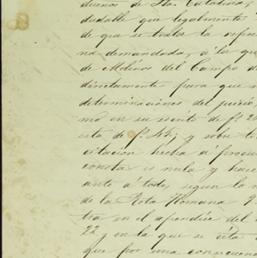 duenos de Sta. Catalina,
dudable que legalmente
de que se trata la refin
na demandada, a la que
de Molinos del Campo d
directamente para que
determinaciones del juicio
mo en su escrito de f. 2
esta de f. y sobre t
citacion hecha á
consta es nula y hace
ante á todo, segun la
de la Rota Romana
tra en el apendice del
22 y en la que se cita
que por una